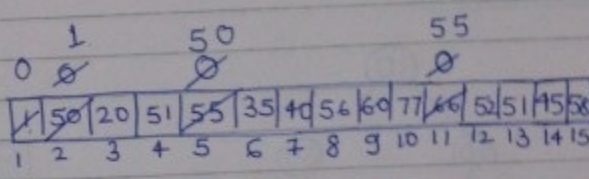 1 50 55
0 0 0 0
1 50 20 51 55 35 40 56 60 77 66 52 51 45 58
1 2 3 4 5 6 7 8 9 10 11 12 13 14 15